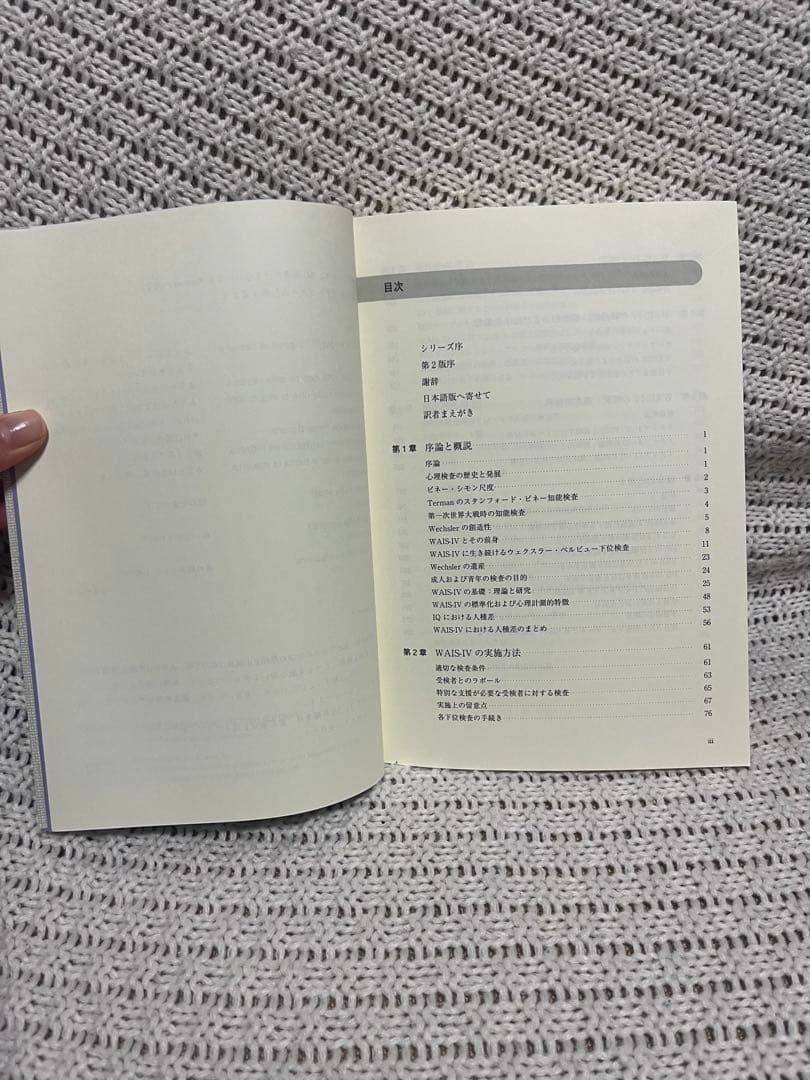 目次
シリーズ序
第2版序
謝辞
日本語版へ寄せて
訳者まえがき
第1章 序論と概説 1
序論 1
心理検査の歴史と発展 1
ビネー・シモン尺度 2
Termanのスタンフォード・ビネー知能検査 3
第一次世界大戦時の知能検査 4
Wechslerの創造性 5
WAIS-IVとその前身 8
WAIS-IVに生き続けるウェクスラー・ベルビュー下位検査 11
Wechslerの遺産 23
成人および青年の検査の目的 24
WAIS-IVの基礎：理論と研究 25
WAIS-IVの標準化および心理計測的特徴 48
IQにおける人種差 53
WAIS-IVにおける人種差のまとめ 56
第2章 WAIS-IVの実施方法 61
適切な検査条件 61
受検者とのラポール 63
特別な支援が必要な受検者に対する検査 65
実施上の留意点 67
各下位検査の手続き 76
iii